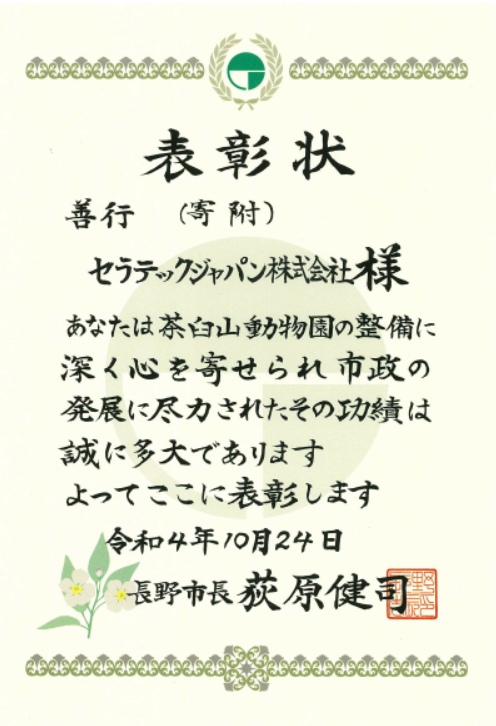 表彰状
善行 （寄附）
セラテックジャパン株式会社様
あなたは茶臼山動物園の整備に
深く心を寄せられ市政の
発展に尽力されたその功績は
誠に多大であります
よってここに表彰します
令和4年10月24日
長野市長 荻原健司